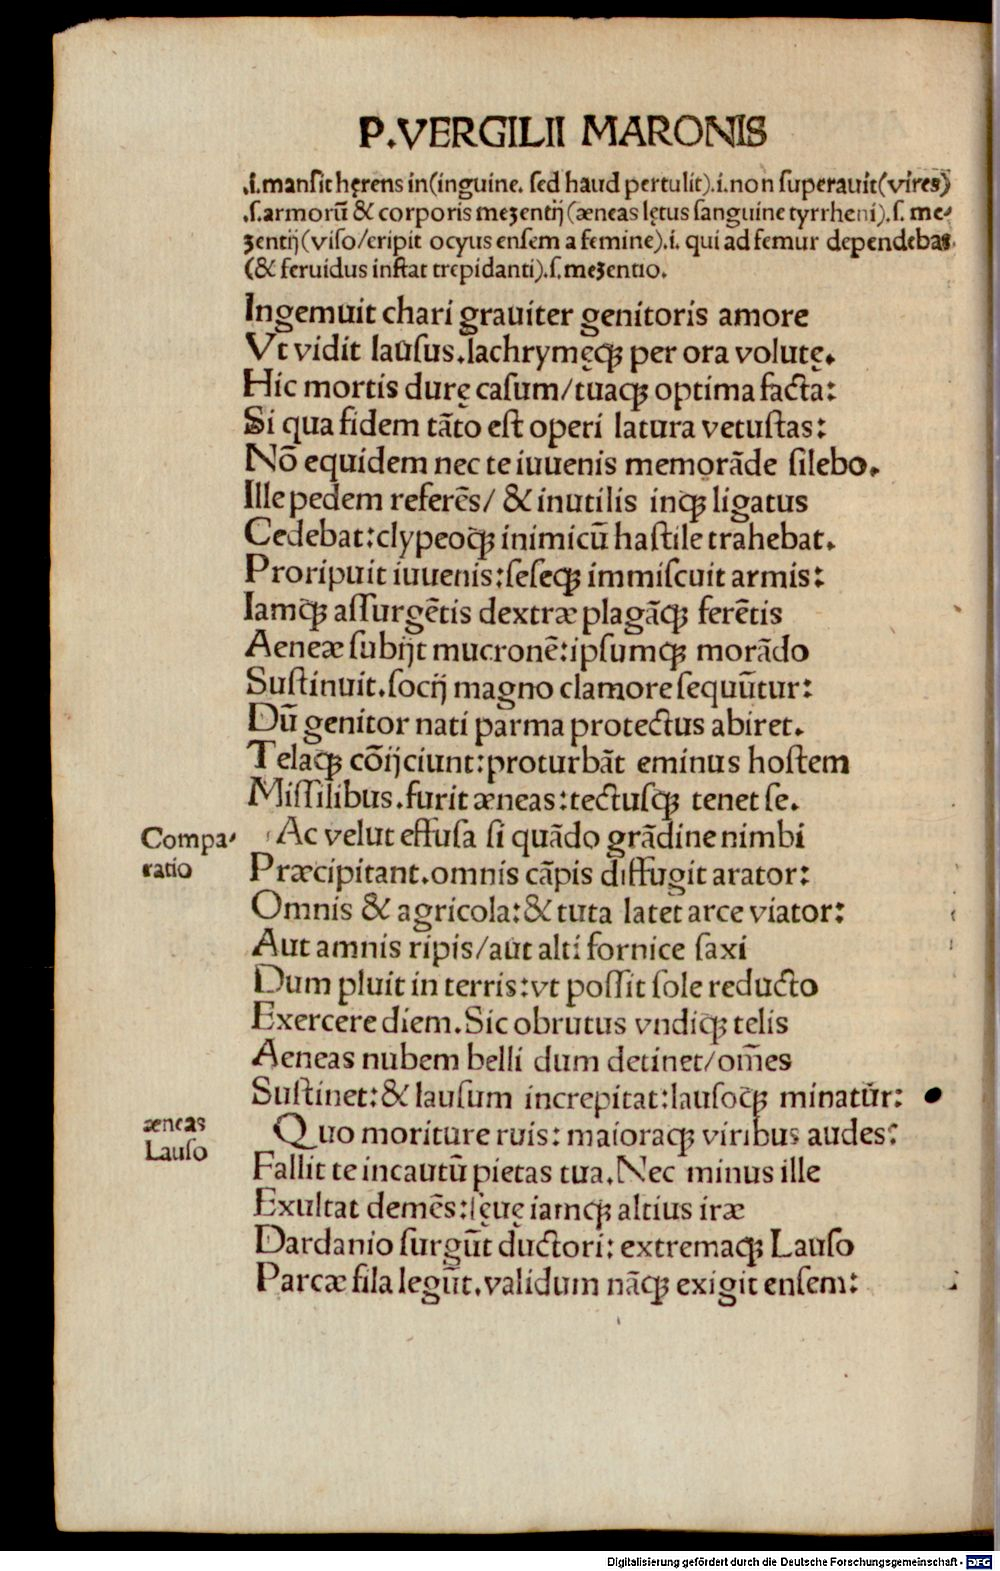 P.VERGILII MARONIS
.i.mansit hęrens in(inguine. sed haud pertulit).i.non superauit(vires)
.s.armorū & corporis mezentij(æneas lętus sanguine tyrrheni).s. me-
zentij(viso/eripit ocyus ensem a femine).i. qui ad femur dependebat
(& feruidus instat trepidanti).s.mezentio.
Ingemuit chari grauiter genitoris amore
Vt vidit lausus.lachrymęqꝫ per ora volutę.
Hic mortis durę casum/tuaqꝫ optima facta:
Si qua fidem tāto est operi latura vetustas:
Nō equidem nec te iuuenis memorāde silebo.
Ille pedem referēs/ & inutilis inqꝫ ligatus
Cedebat:clypeoqꝫ inimicū hastile trahebat.
Proripuit iuuenis:seseqꝫ immiscuit armis:
Iamqꝫ assurgētis dextræ plagāqꝫ ferētis
Aeneæ subijt mucronē:ipsumqꝫ morādo
Sustinuit.socij magno clamore sequūtur:
Dū genitor nati parma protectus abiret.
Telaqꝫ cōijciunt:proturbāt eminus hostem
Missilibus.furit æneas:tectusqꝫ tenet se.
Compa-
ratio
Ac velut effusa si quādo grādine nimbi
Præcipitant.omnis cāpis diffugit arator:
Omnis & agricola:& tuta latet arce viator:
Aut amnis ripis/aut alti fornice saxi
Dum pluit in terris:vt possit sole reducto
Exercere diem.Sic obrutus vndiqꝫ telis
Aeneas nubem belli dum detinet/om̄es
Sustinet:& lausum increpitat:lausoqꝫ minatur̄:
æneas
Lauso
Quo moriture ruis: maioraqꝫ viribus audes:
Fallit te incautū pietas tua.Nec minus ille
Exultat demēs:sęuę iamqꝫ altius iræ
Dardanio surgūt ductori: extremaqꝫ Lauso
Parcæ fila legūt.validum nāqꝫ exigit ensem:
Digitalisierung gefördert durch die Deutsche Forschungsgemeinschaft - DFG